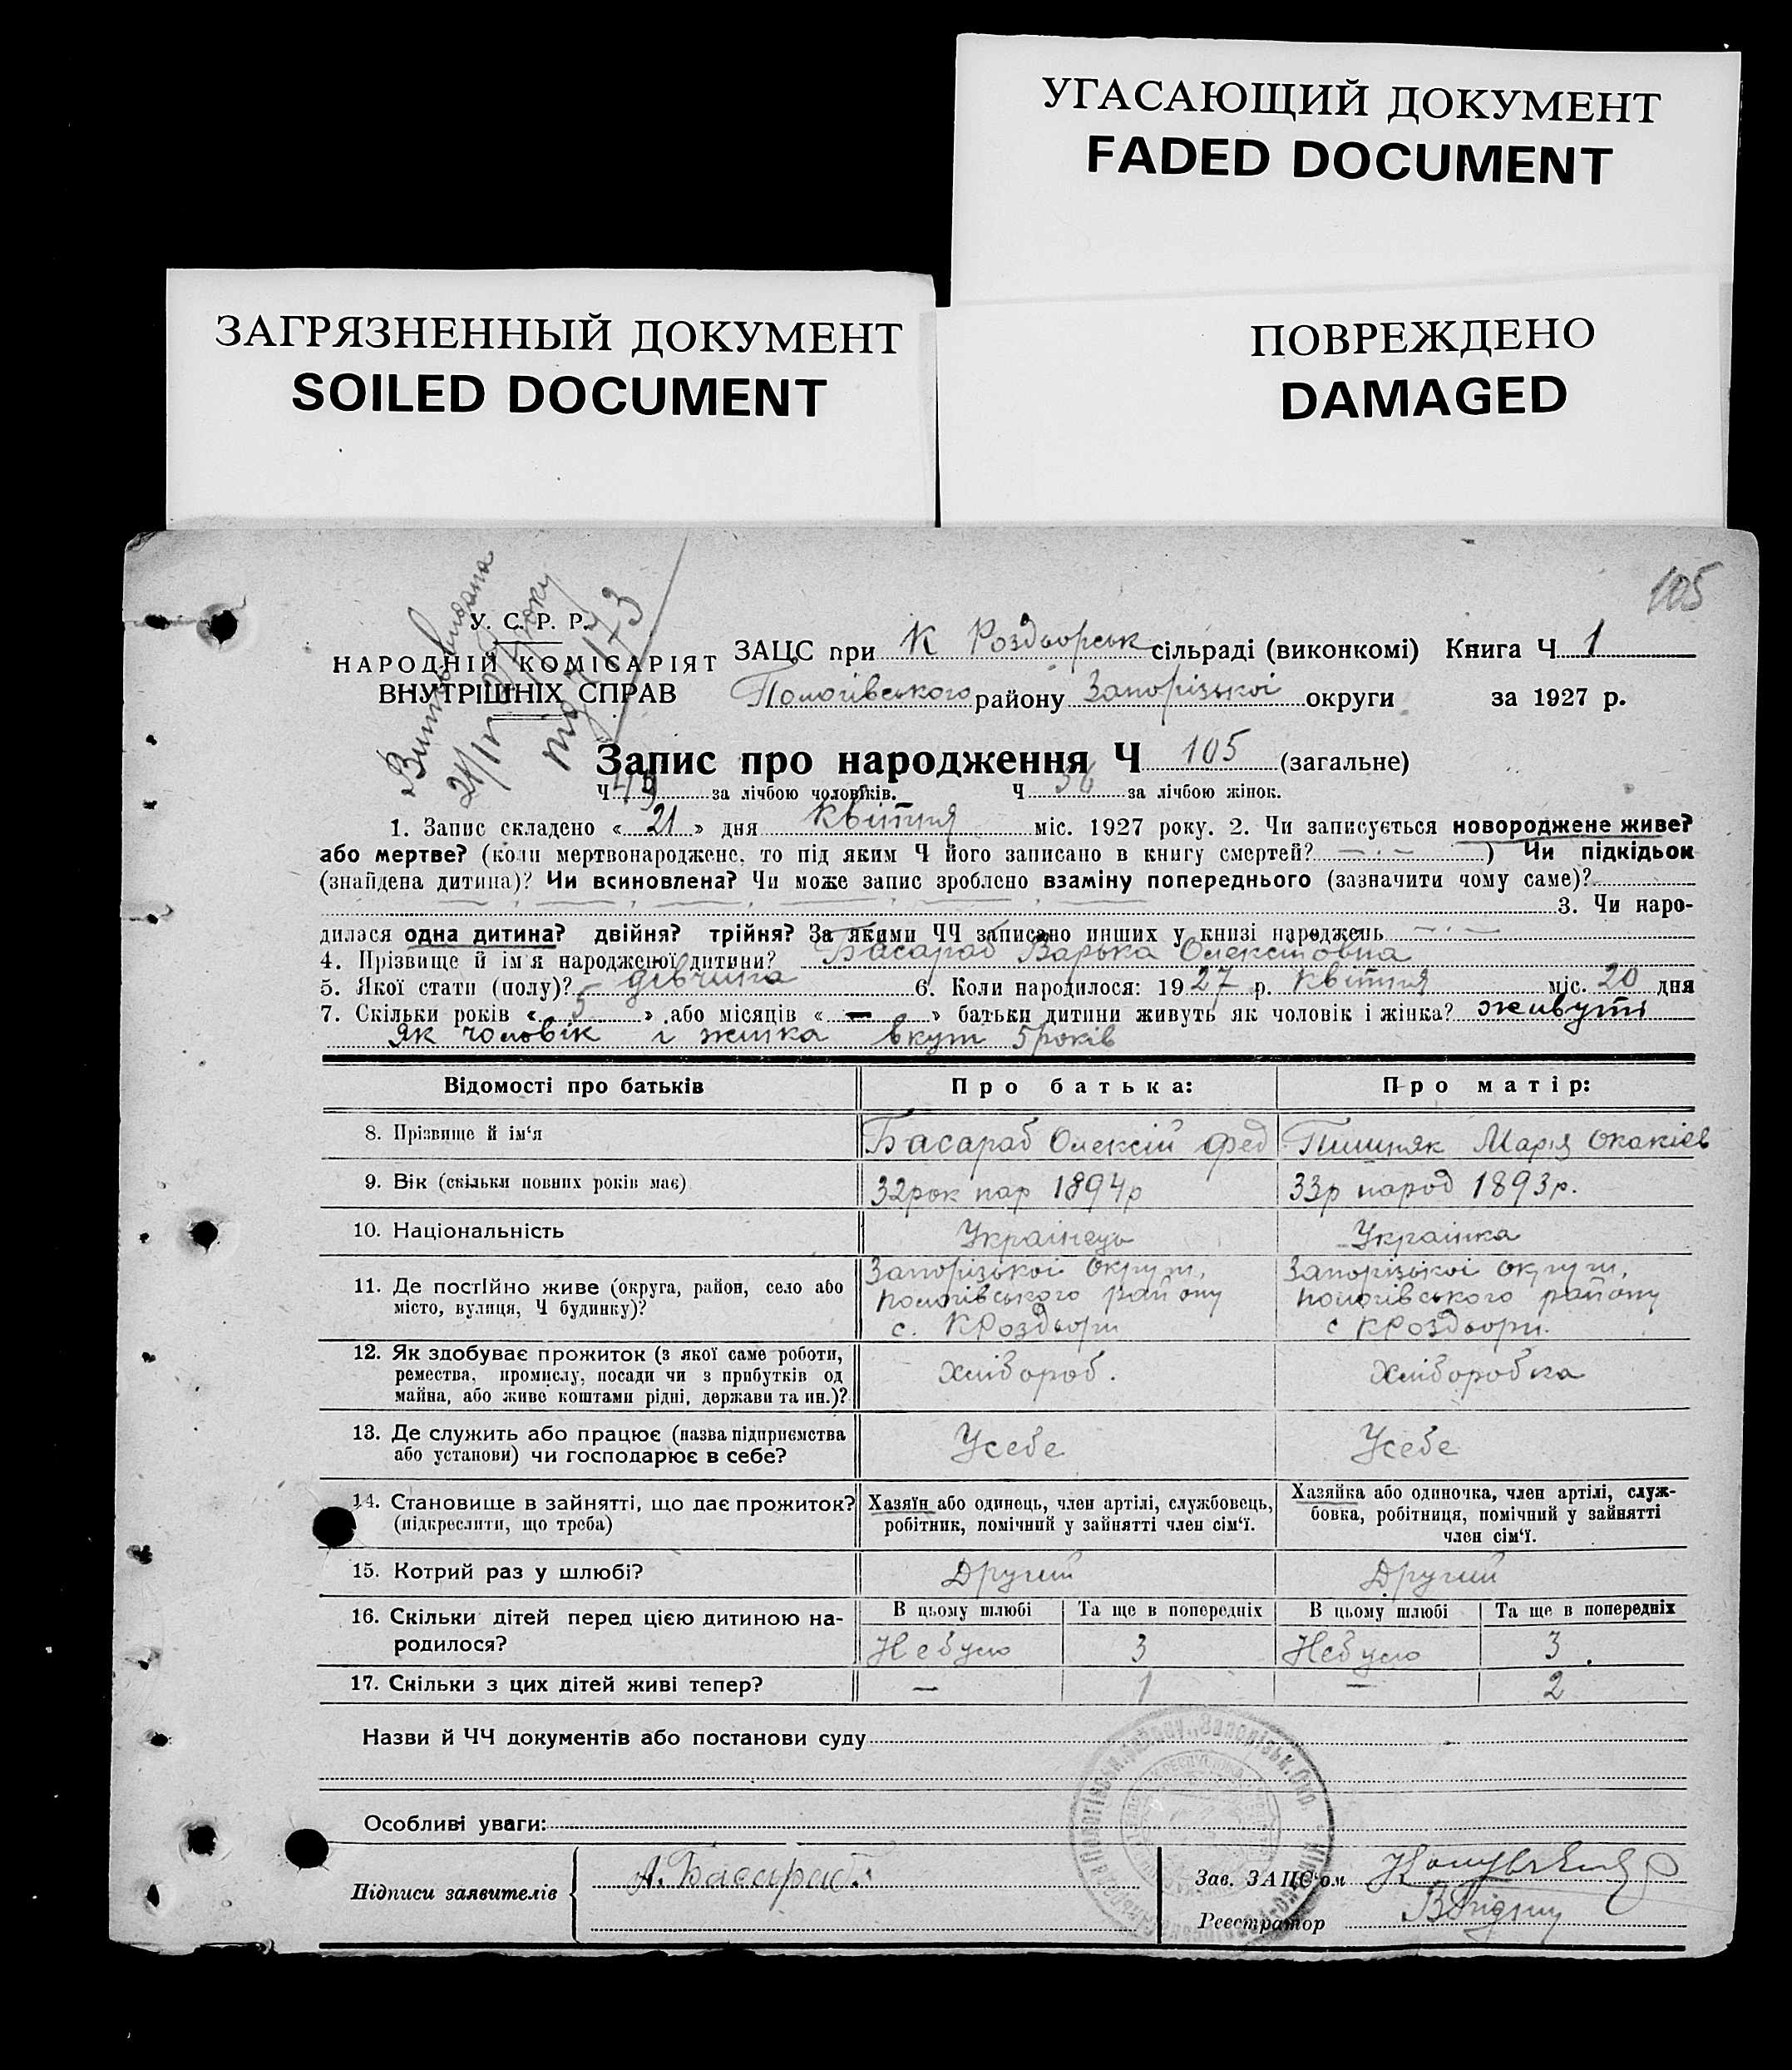 УГАСАЮЩИЙ ДОКУМЕНТ
FADED DOCUMENT
ЗАГРЯЗНЕННЫЙ ДОКУМЕНТ
SOILED DOCUMENT
ПОВРЕЖДЕНО
DAMAGED
105
У. С. Р. Р.
НАРОДНІЙ КОМІСАРІЯТ
ВНУТРІШНІХ СПРАВ
ЗАЦС при К Роздворськ сільраді (виконкомі) Книга Ч 1
Пологівського району Запорізької округи за 1927 р.
Запис про народження Ч 105 (загальне)
Ч 49 за лічбою чоловіків. Ч 56 за лічбою жінок.
1. Запис складено « 21 » дня квітня міс. 1927 року. 2. Чи записується новороджене живе?
або мертве? (коли мертвонароджене, то під яким Ч його записано в книгу смертей? — · — ) Чи підкідьок
(знайдена дитина)? Чи всиновлена? Чи може запис зроблено взаміну попереднього (зазначити чому саме)?
3. Чи наро-
дилася одна дитина? двійня? трійня? За якими ЧЧ записано инших у книзі народжень — · —
4. Прізвище й ім'я народженої дитини? Басараб Варька Олексіовна
5. Якої стати (полу)? дівчина 6. Коли народилося: 1927 р. Квітня міс. 20 дня
7. Скільки років « 5 » або місяців « — » батьки дитини живуть як чоловік і жінка? живуть
як чоловік і жінка вкуті 5 років
Відомості про батьків Про батька: Про матір:
8. Прізвище й ім'я Басараб Олексій Фед Пишняк Марія Окакієв
9. Вік (скільки повних років має) 32рок нар 1894р 33р народ 1893р.
10. Національність Українець Українка
11. Де постійно живе (округа, район, село або місто, вулиця, Ч будинку)?
Запорізької округи, Запорізької округи,
пологівського району пологівського району
с. КРоздори с КРоздори.
12. Як здобуває прожиток (з якої саме роботи,
ремества, промислу, посади чи з прибутків од
майна, або живе коштами рідні, держави та ин.)?
Хлібороб. Хліборобка
13. Де служить або працює (назва підприємства
або установи) чи господарює в себе?
Усебе Усебе
14. Становище в зайнятті, що дає прожиток?
(підкреслити, що треба)
Хазяїн або одинець, член артілі, службовець,
робітник, помічний у зайнятті член сім'ї.
Хазяйка або одиночка, член артілі, служ-
бовка, робітниця, помічний у зайнятті
член сім'ї.
15. Котрий раз у шлюбі? Другий Другий
16. Скільки дітей перед цією дитиною на-
родилося?
В цьому шлюбі Та ще в попередніх В цьому шлюбі Та ще в попередніх
Небуло 3 Небуло 3
17. Скільки з цих дітей живі тепер? — 1 — 2
Назви й ЧЧ документів або постанови суду
Особливі уваги:
Підписи заявителів А. Басараб
Зав. ЗАЦС'ом
Реєстратор